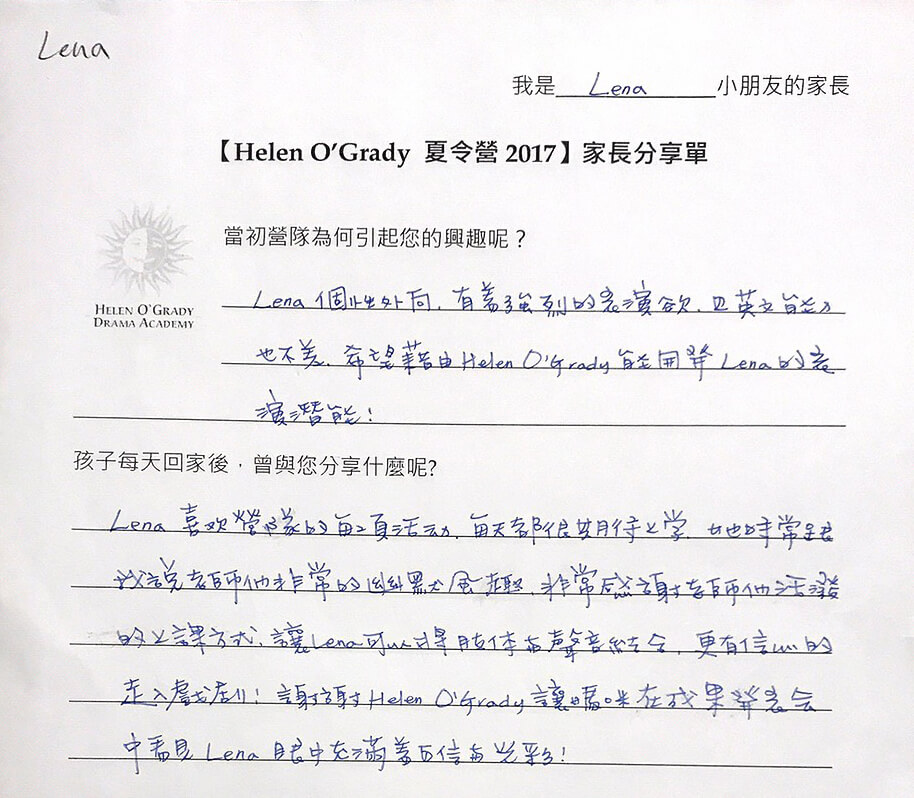 Lena
我是 Lena 小朋友的家長
【Helen O'Grady 夏令營 2017】家長分享單
HELEN O'GRADY
DRAMA ACADEMY
當初營隊為何引起您的興趣呢？
Lena 個性外向，有著強烈的表演欲，且英文能力
也不差，希望藉由 Helen O'Grady 能開發 Lena 的表
演潛能！
孩子每天回家後，曾與您分享什麼呢?
Lena 喜歡營隊的每項活動，每天都很期待上学，她時常跟
我說老師他非常的幽默風趣，非常感謝老師他活潑
的上課方式，讓 Lena 可以將肢体与聲音結合，更有信心的
走入戲劇！謝謝 Helen O'Grady 讓媽咪在成果發表会
中看見 Lena 眼中充滿著自信与光彩！